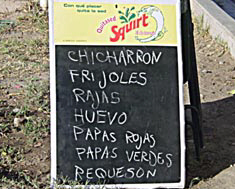 Con qué placer
quita la sed
Quitased
Squirt
CHICHARRON
FRIJOLES
RAJAS
HUEVO
PAPAS ROJAS
PAPAS VERDES
REQUESON